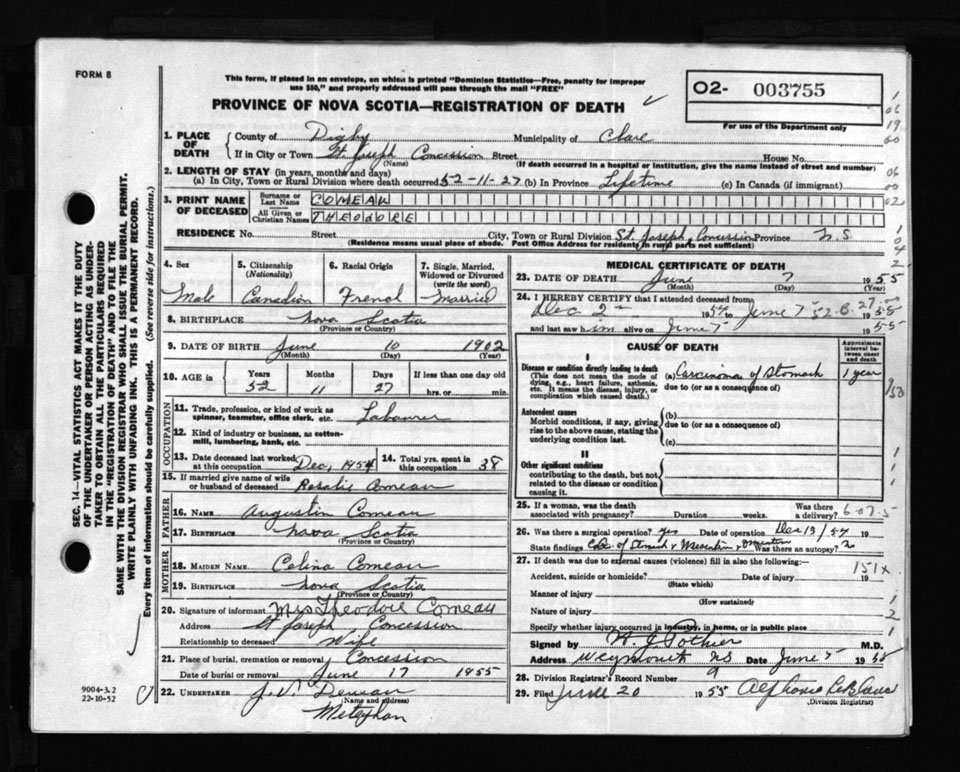 FORM 8
This form, if placed in an envelope, on which is printed "Dominion Statistics—Free, penalty for improper
use $50," and properly addressed will pass through the mail "FREE"
PROVINCE OF NOVA SCOTIA—REGISTRATION OF DEATH
O2- 003755
For use of the Department only
1. PLACE OF DEATH County of Digby Municipality of Clare
If in City or Town St. Joseph Concession Street House No.
(Name) (If death occurred in a hospital or institution, give the name instead of street and number)
2. LENGTH OF STAY (in years, months and days)
(a) In City, Town or Rural Division where death occurred 52-11-27 (b) In Province Lifetime (c) In Canada (if immigrant)
3. PRINT NAME OF DECEASED Surname or Last Name COMEAU
All Given or Christian Names THEODORE
RESIDENCE No. Street City, Town or Rural Division St. Joseph, Concession Province N.S
(Residence means usual place of abode. Post Office Address for residents in rural parts not sufficient)
4. Sex Male
5. Citizenship (Nationality) Canadian
6. Racial Origin French
7. Single, Married, Widowed or Divorced (write the word) Married
8. BIRTHPLACE Nova Scotia
(Province or Country)
9. DATE OF BIRTH June 10 1902
(Month) (Day) (Year)
10. AGE in Years 52 Months 11 Days 27 If less than one day old hrs. or min.
OCCUPATION
11. Trade, profession, or kind of work as spinner, teamster, office clerk. etc. Labourer
12. Kind of industry or business, as cotton-mill, lumbering, bank, etc.
13. Date deceased last worked at this occupation Dec, 1954
14. Total yrs. spent in this occupation 38
15. If married give name of wife or husband of deceased Rosalie Comeau
FATHER
16. NAME Augustin Comeau
17. BIRTHPLACE Nova Scotia
(Province or Country)
MOTHER
18. MAIDEN NAME Celina Comeau
19. BIRTHPLACE Nova Scotia
(Province or Country)
20. Signature of informant Mrs Theodore Comeau
Address St Joseph Concession
Relationship to deceased Wife
21. Place of burial, cremation or removal Concession
Date of burial or removal June 17 1955
22. UNDERTAKER J.V. Deveau
(Name and address)
Meteghan
MEDICAL CERTIFICATE OF DEATH
23. DATE OF DEATH June 7 1955
(Month) (Day)
24. I HEREBY CERTIFY that I attended deceased from
Dec 2 1954 to June 7 1955
and last saw him alive on June 7 1955
CAUSE OF DEATH
Approximate interval between onset and death
I
Disease or condition directly leading to death
(This does not mean the mode of dying, e.g., heart failure, asthenia, etc. It means the disease, injury, or complication which caused death.)
(a) Carcinoma of Stomach 1 year
due to (or as a consequence of)
Antecedent causes
Morbid conditions, if any, giving rise to the above cause, stating the underlying condition last.
(b)
due to (or as a consequence of)
(c)
II
Other significant conditions
contributing to the death, but not related to the disease or condition causing it.
25. If a woman, was the death associated with pregnancy? Duration weeks. Was there a delivery?
26. Was there a surgical operation? Yes Date of operation Dec 13/54 19
State findings Ca. of Stomach & Mesentery & Omentum Was there an autopsy? No
27. If death was due to external causes (violence) fill in also the following:—
Accident, suicide or homicide? Date of injury 19
(State which)
Manner of injury
(How sustained)
Nature of injury
Specify whether injury occurred in industry, in home, or in public place
Signed by H. J. Pothier M.D.
Address Weymouth NS Date June 7 1955
28. Division Registrar's Record Number 9
29. Filed June 20 1955 Alphonse LeBlanc
(Division Registrar)
SEC. 14—VITAL STATISTICS ACT MAKES IT THE DUTY
OF THE UNDERTAKER OR PERSON ACTING AS UNDER-
TAKER TO OBTAIN ALL THE PARTICULARS REQUIRED
IN THE "REGISTRATION OF DEATH" AND TO FILE THE
SAME WITH THE DIVISION REGISTRAR WHO SHALL ISSUE THE BURIAL PERMIT.
WRITE PLAINLY WITH UNFADING INK. THIS IS A PERMANENT RECORD.
Every item of information should be carefully supplied. (See reverse side for instructions.)
9004-3.2
22-10-52
151x